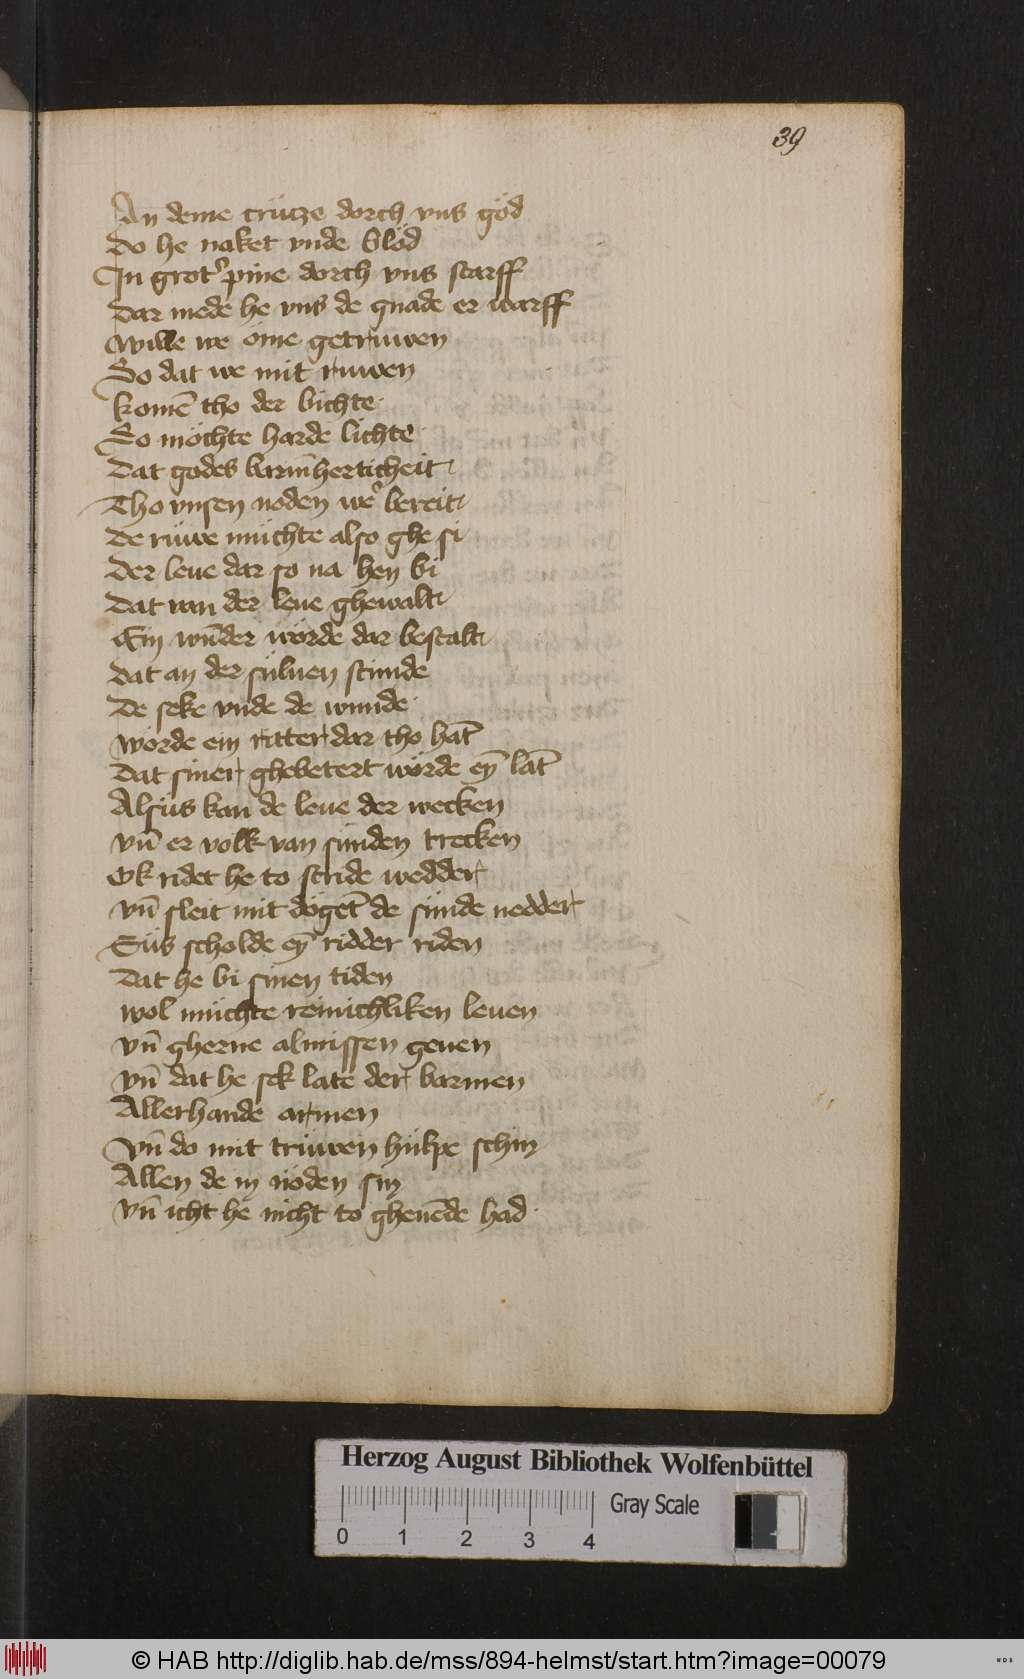 39
An deme crütze dorch vns göd
Do he naket vnde blöd
In grotˀ pine dorch vns starff
Dar mede he vns de gnade er warff
Wille we öme getruwen
So dat we mit ruwen
komē tho der bichte
So möchte harde lichte
Dat godes barm̄herticheit
Tho vnsen noden weˀ bereit
De rüwe müchte also ghe si
Der leue dar so na hen bi
Dat van der leue ghewalt
Ein wūder wörde dar bestalt
Dat an der süluen stunde
De seke vnde de wunde
Worde ein ritter dar tho hat̄
Dat siner ghebetert wörde eȳ lat̄
Alsüs kan de leue der wecken
Vn̄ er volk van sunden trecken
Ok ridet he to stride wedder
Vn̄ sleit mit dögēt de sunde nedder
Süs scholde eȳ ridder riden
Dat he bi sinen tiden
Wol müchte reinichliken leuen
Vn̄ gherne almissen geuen
Vn̄ dat he sek late der barmen
Allerhande armen
Vn̄ do mit trüwen hülpe schin
Allen de in nöden sin
Vn̄ icht he nicht to gheuēde had
Herzog August Bibliothek Wolfenbüttel
Gray Scale
0 1 2 3 4
© HAB http://diglib.hab.de/mss/894-helmst/start.htm?image=00079